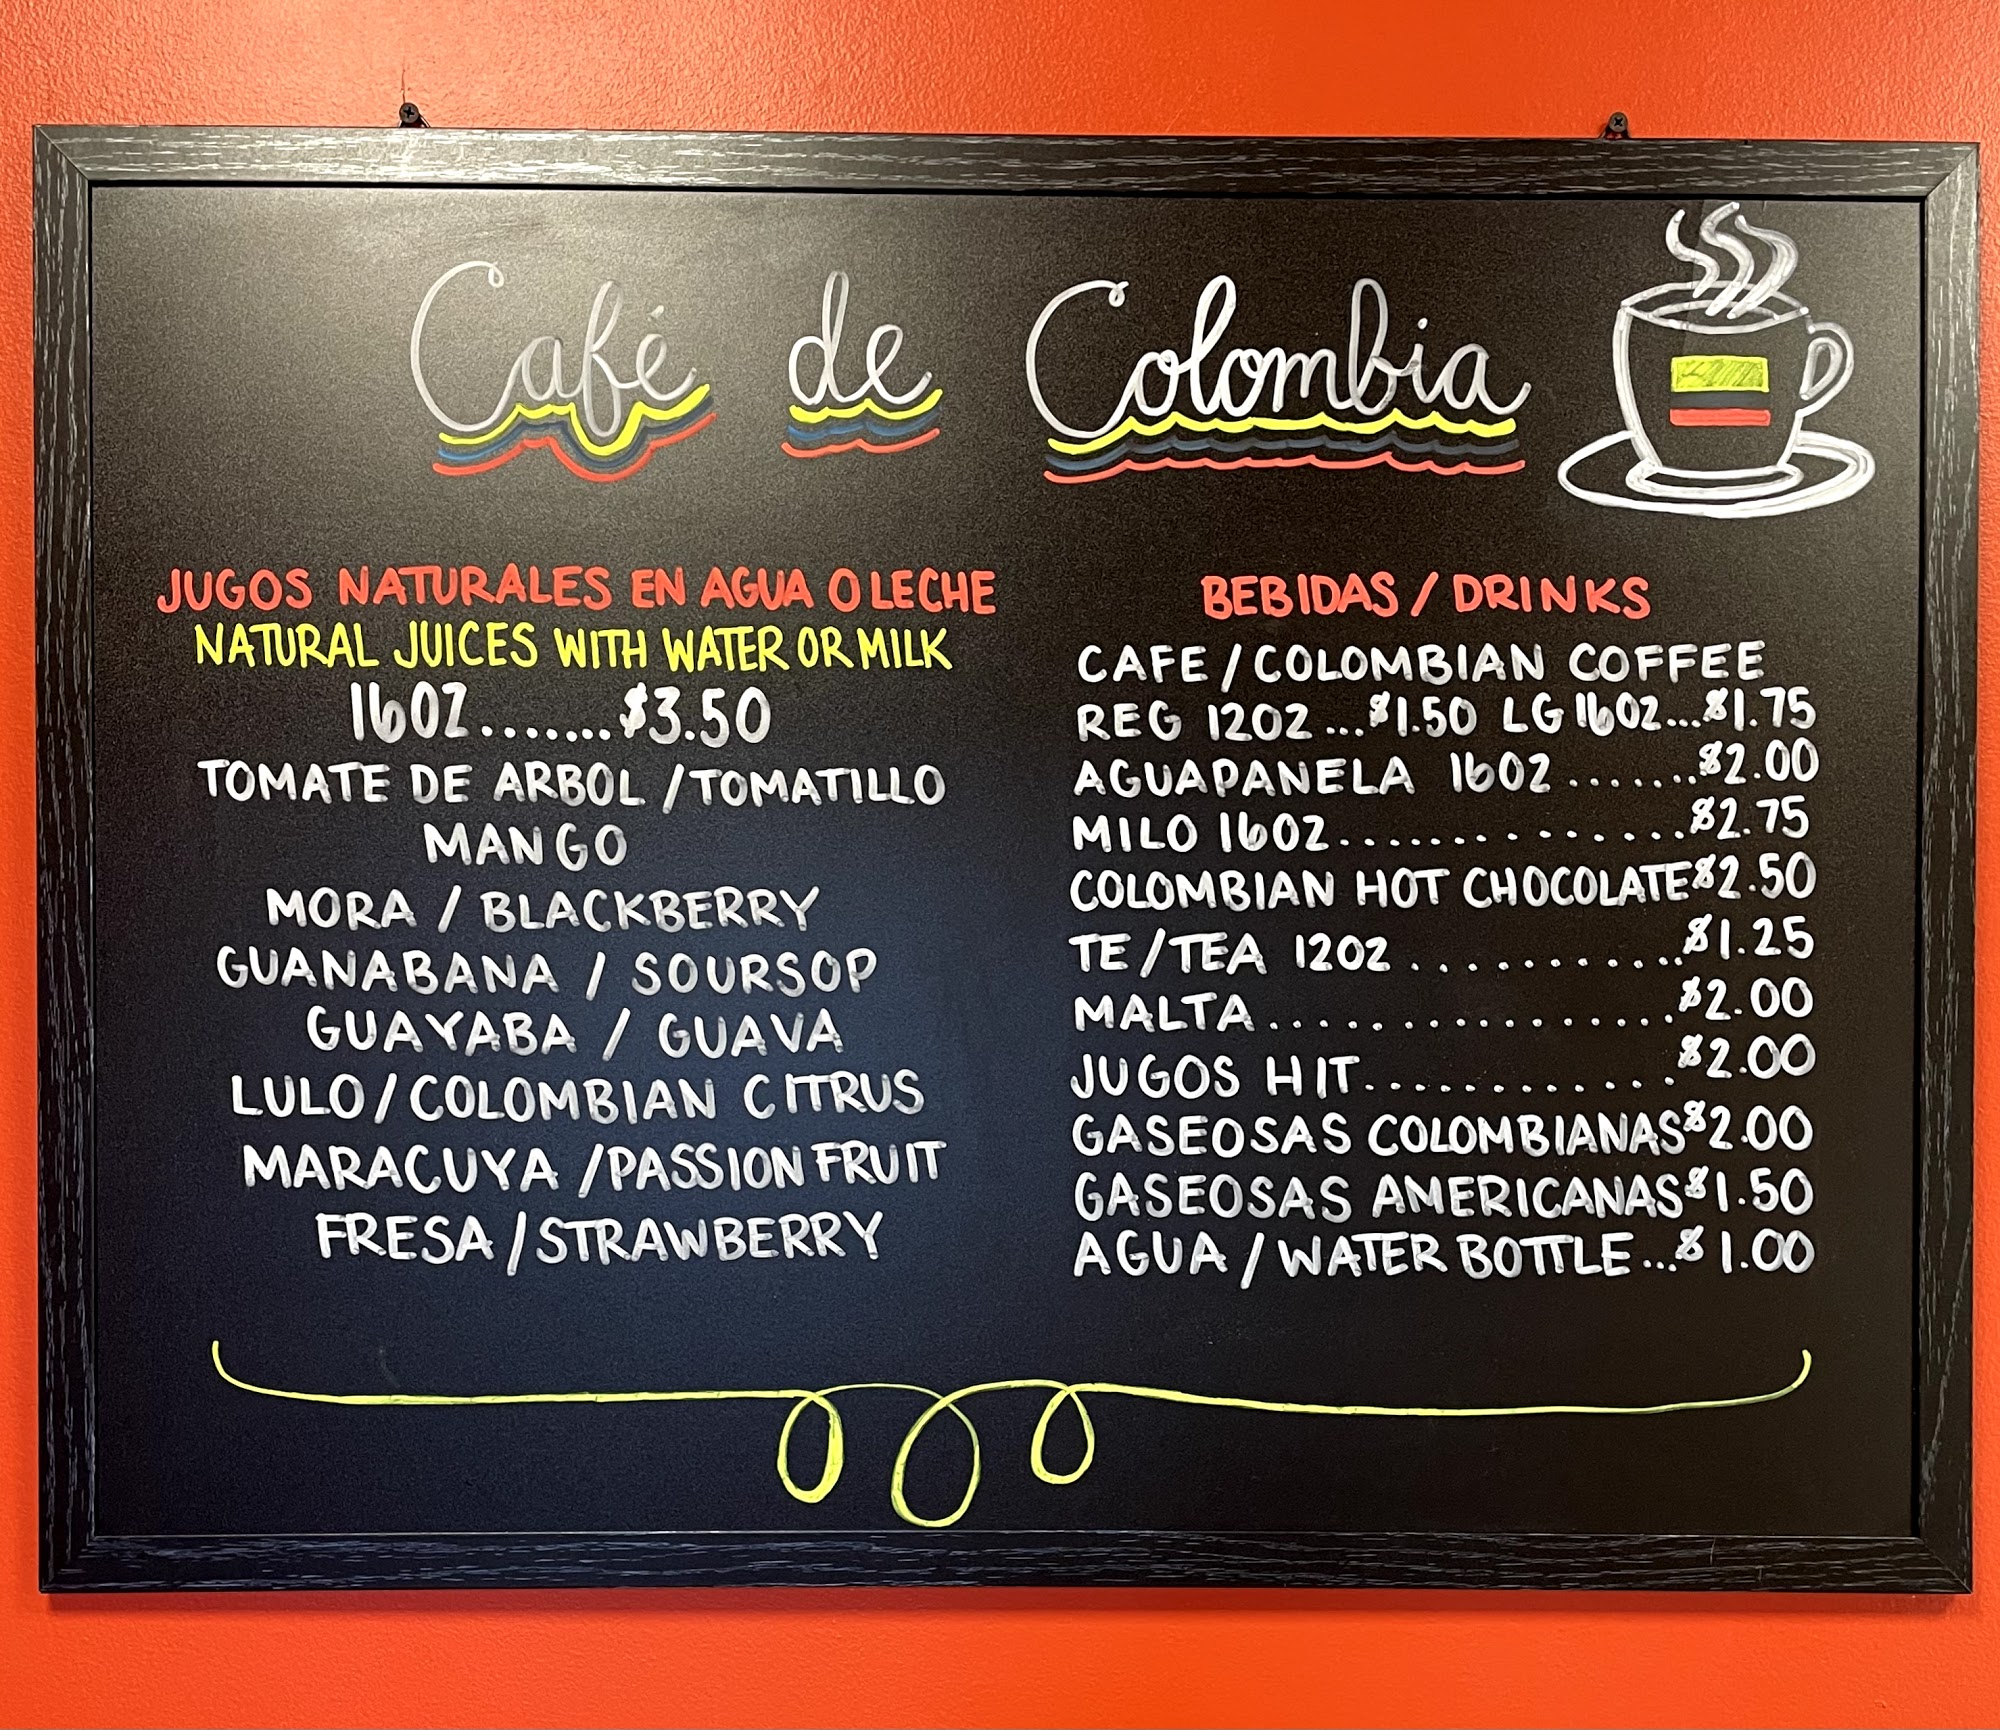 Café de Colombia
JUGOS NATURALES EN AGUA O LECHE
NATURAL JUICES WITH WATER OR MILK
16OZ.......$3.50
TOMATE DE ARBOL / TOMATILLO
MANGO
MORA / BLACKBERRY
GUANABANA / SOURSOP
GUAYABA / GUAVA
LULO / COLOMBIAN CITRUS
MARACUYA / PASSION FRUIT
FRESA / STRAWBERRY
BEBIDAS / DRINKS
CAFE / COLOMBIAN COFFEE
REG 12OZ...$1.50 LG 16OZ...$1.75
AGUAPANELA 16OZ.......$2.00
MILO 16OZ...............$2.75
COLOMBIAN HOT CHOCOLATE $2.50
TE / TEA 12OZ............$1.25
MALTA.................$2.00
JUGOS HIT.............$2.00
GASEOSAS COLOMBIANAS $2.00
GASEOSAS AMERICANAS $1.50
AGUA / WATER BOTTLE...$1.00